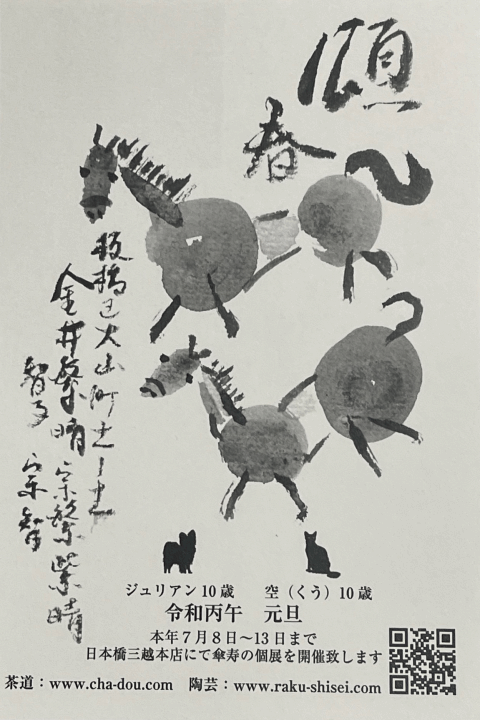 頌
春
板橋区大山町
金井繁晴 宗繁 紫晴
智子 宗智
ジュリアン10歳 空(くう)10歳
令和丙午 元旦
本年7月8日〜13日まで
日本橋三越本店にて傘寿の個展を開催致します
茶道:www.cha-dou.com 陶芸:www.raku-shisei.com